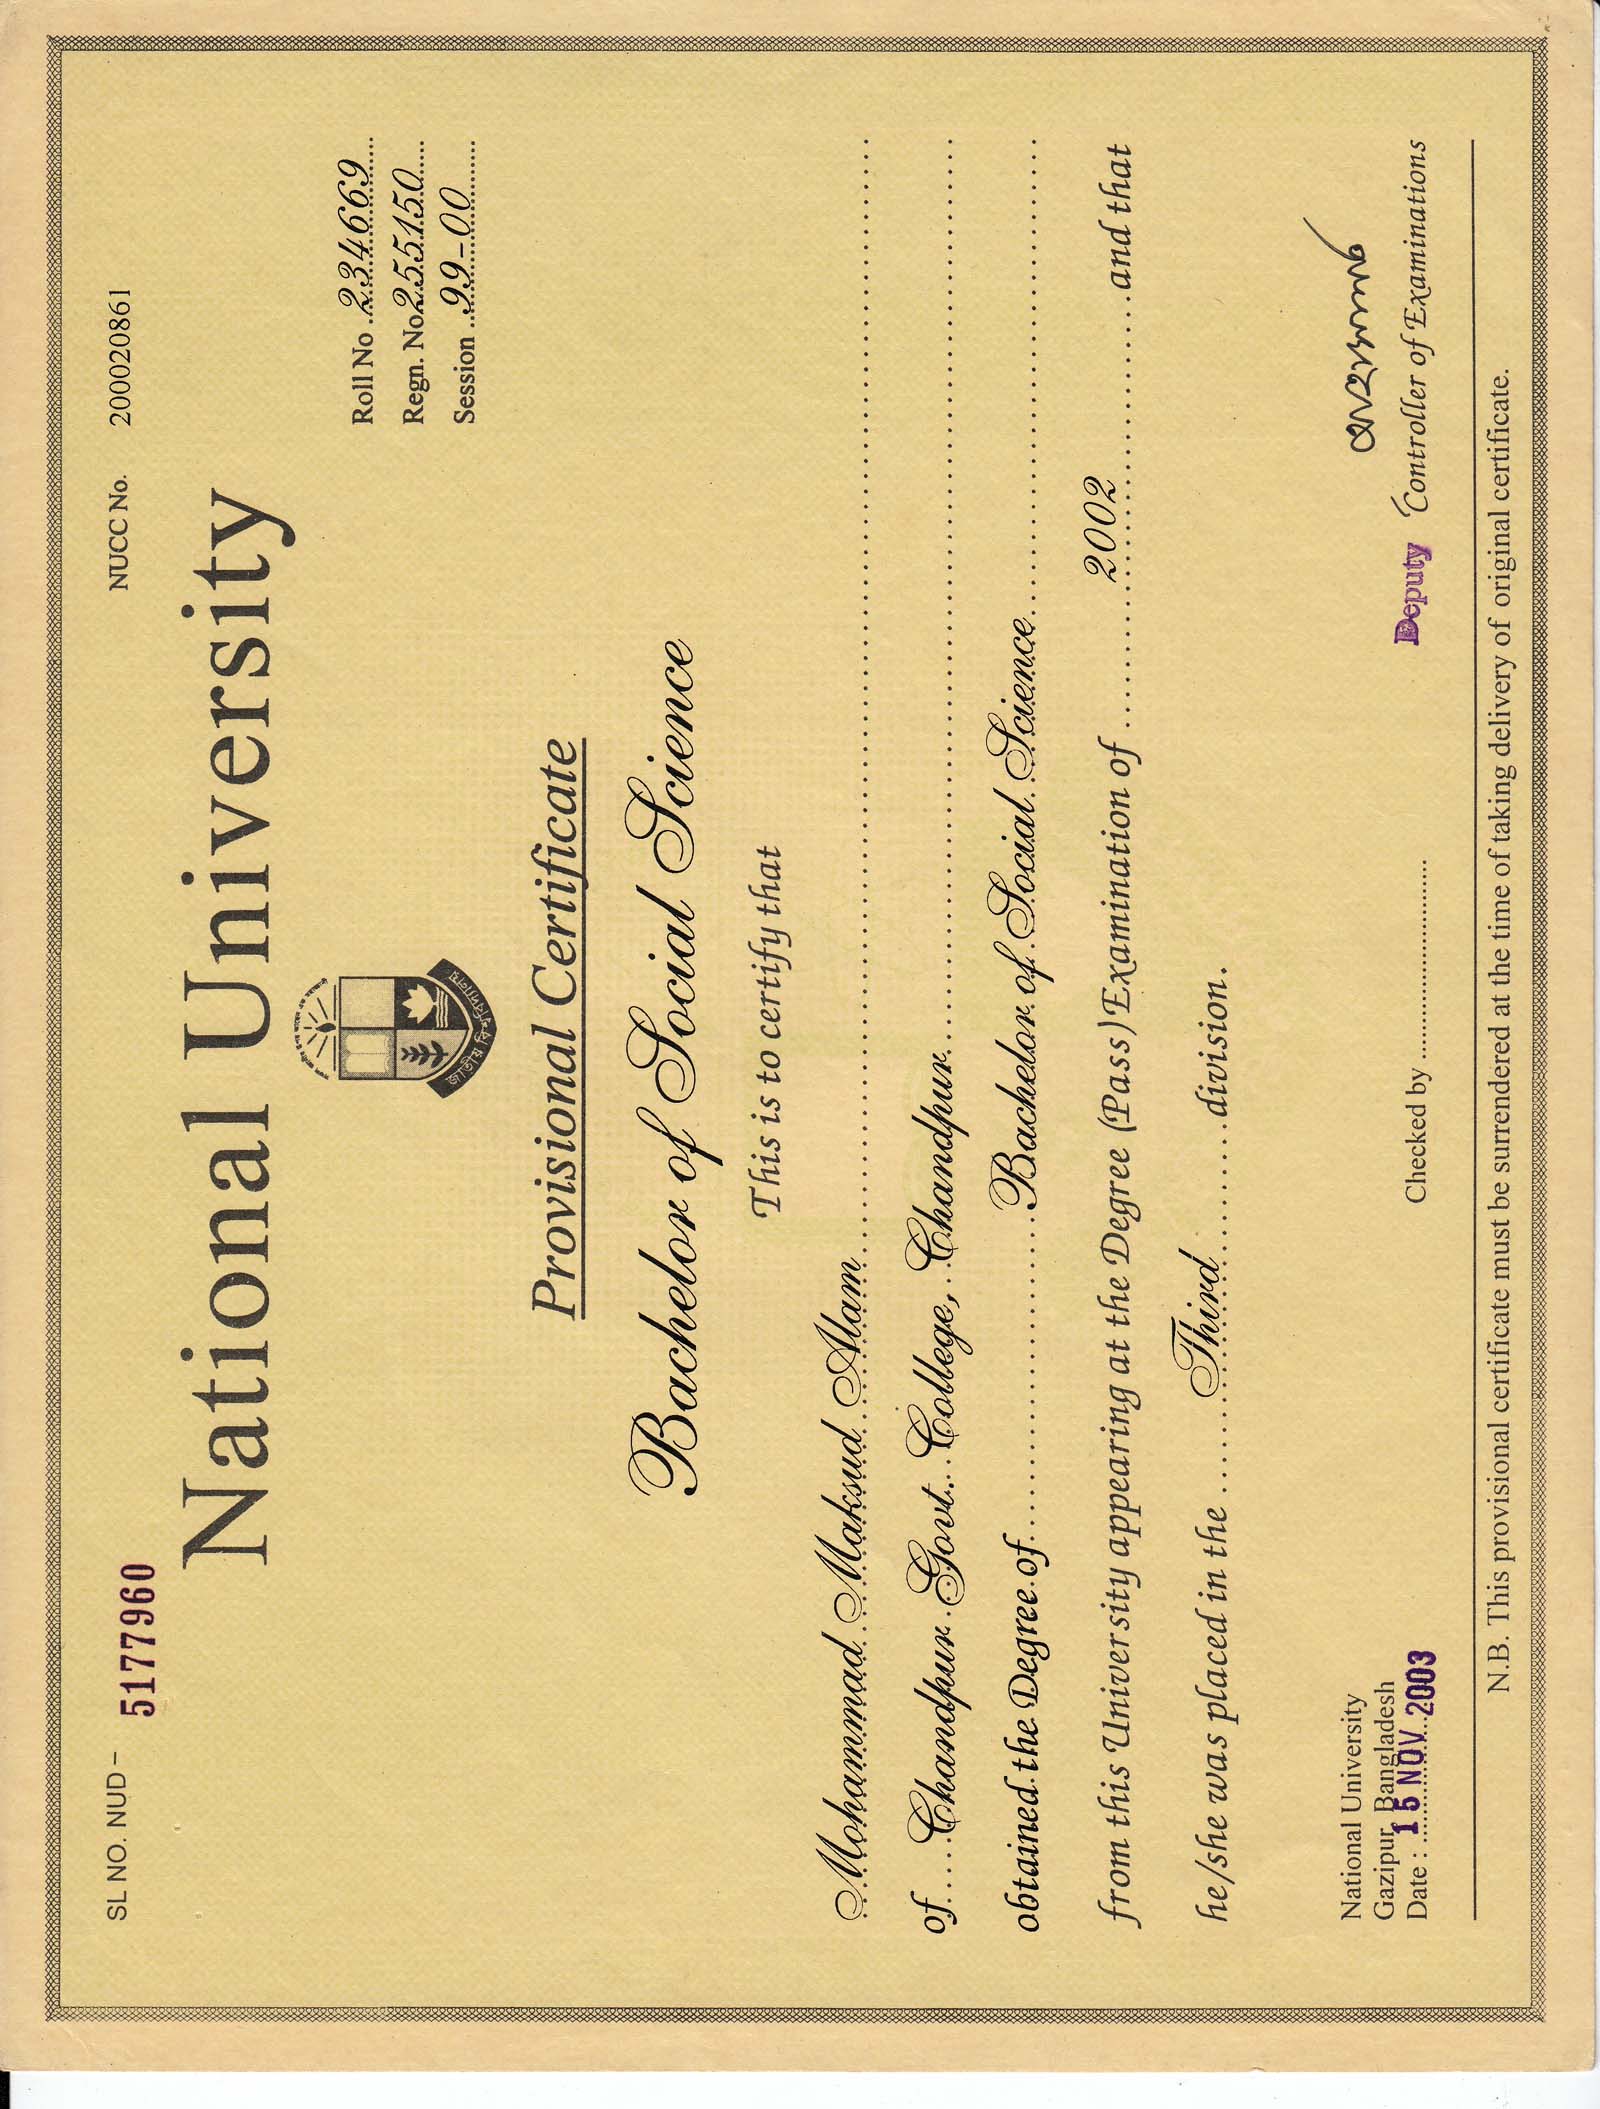 SL NO. NUD – 5177960 NUCC No. 200020861
National University
Roll No ..234669...
Regn. No.255150....
Session ..99-00......
জাতীয় বিশ্ববিদ্যালয়
Provisional Certificate
Bachelor of Social Science
This is to certify that
Mohammad Maksud Alam
of Chandpur Govt. College, Chandpur
obtained the Degree of Bachelor of Social Science
from this University appearing at the Degree (Pass) Examination of 2002 and that
he/she was placed in the Third division.
National University
Gazipur, Bangladesh
Date : 15 NOV 2003 Checked by Deputy Controller of Examinations
N.B. This provisional certificate must be surrendered at the time of taking delivery of original certificate.